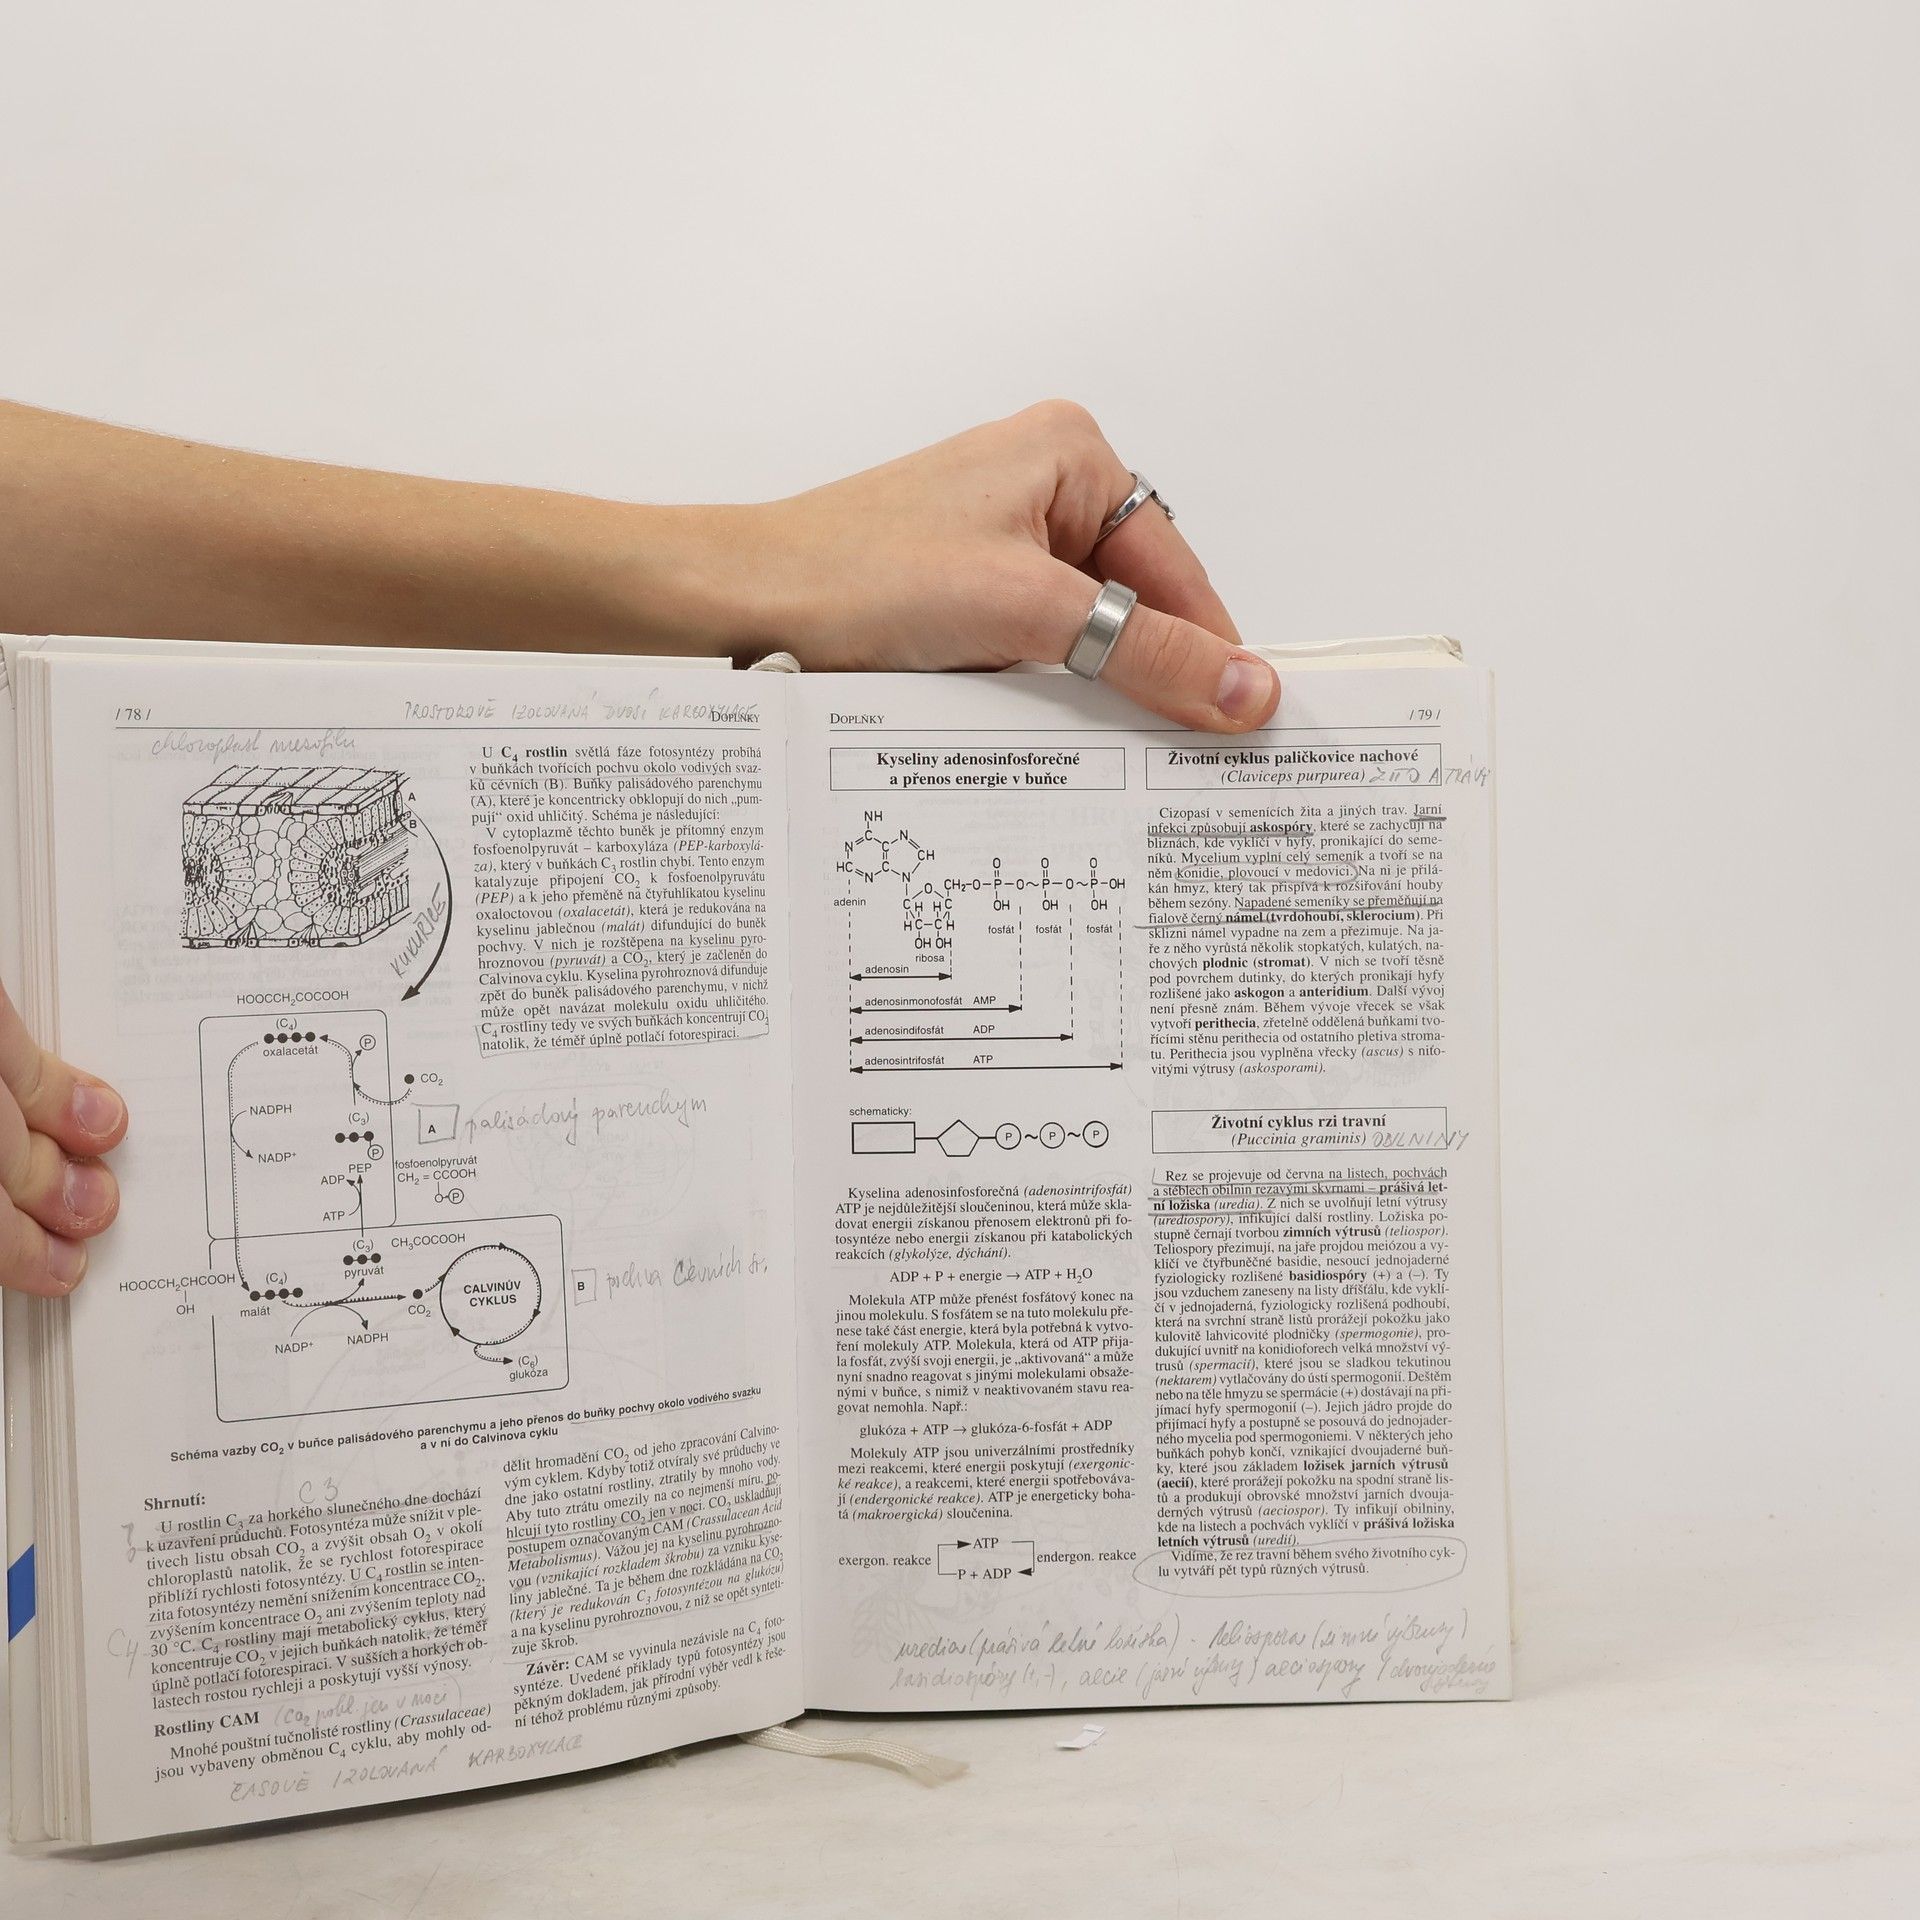 / 78 /
PROSTOROVĚ IZOLOVANÁ DVOJÍ KARBOXYLACE
DOPLŇKY
chloroplast mezofilu
A
B
KUKUŘICE
U C₄ rostlin světlá fáze fotosyntézy probíhá
v buňkách tvořících pochvu okolo vodivých svaz-
ků cévních (B). Buňky palisádového parenchymu
(A), které je koncentricky obklopují do nich „pum-
pují“ oxid uhličitý. Schéma je následující:
V cytoplazmě těchto buněk je přítomný enzym
fosfoenolpyruvát – karboxyláza (PEP-karboxylá-
za), který v buňkách C₃ rostlin chybí. Tento enzym
katalyzuje připojení CO₂ k fosfoenolpyruvátu
(PEP) a k jeho přeměně na čtyřuhlíkatou kyselinu
oxaloctovou (oxalacetát), která je redukována na
kyselinu jablečnou (malát) difundující do buněk
pochvy. V nich je rozštěpena na kyselinu pyro-
hroznovou (pyruvát) a CO₂, který je začleněn do
Calvinova cyklu. Kyselina pyrohroznová difunduje
zpět do buněk palisádového parenchymu, v nichž
může opět navázat molekulu oxidu uhličitého.
C₄ rostliny tedy ve svých buňkách koncentrují CO₂
natolik, že téměř úplně potlačí fotorespiraci.
HOOCCH₂COCOOH
(C₄)
oxalacetát
P
CO₂
NADPH
(C₃)
P
NADP⁺
PEP
fosfoenolpyruvát
CH₂ = CCOOH
O-P
ADP
ATP
A
palisádový parenchym
(C₃)
CH₃COCOOH
pyruvát
HOOCCH₂CHCOOH
OH
(C₄)
malát
CO₂
CALVINŮV
CYKLUS
B
pochva cévních sv.
NADP⁺
NADPH
(C₆)
glukóza
Schéma vazby CO₂ v buňce palisádového parenchymu a jeho přenos do buňky pochvy okolo vodivého svazku
a v ní do Calvinova cyklu
Shrnutí:
C3
U rostlin C₃ za horkého slunečného dne dochází
k uzavření průduchů. Fotosyntéza může snížit v ple-
tivech listu obsah CO₂ a zvýšit obsah O₂ v okolí
chloroplastů natolik, že se rychlost fotorespirace
přiblíží rychlosti fotosyntézy. U C₄ rostlin se inten-
zita fotosyntézy nemění snížením koncentrace CO₂,
zvýšením koncentrace O₂ ani zvýšením teploty nad
30 °C. C₄ rostliny mají metabolický cyklus, který
C4
koncentruje CO₂ v jejich buňkách natolik, že téměř
úplně potlačí fotorespiraci. V sušších a horkých ob-
lastech rostou rychleji a poskytují vyšší výnosy.
Rostliny CAM
(CO₂ pohl. jen v noci)
Mnohé pouštní tučnolisté rostliny (Crassulaceae)
jsou vybaveny obměnou C₄ cyklu, aby mohly od-
ČASOVĚ IZOLOVANÁ KARBOXYLACE
dělit hromadění CO₂ od jeho zpracování Calvino-
vým cyklem. Kdyby totiž otvíraly své průduchy ve
dne jako ostatní rostliny, ztratily by mnoho vody.
Aby tuto ztrátu omezily na co nejmenší míru, po-
hlcují tyto rostliny CO₂ jen v noci. CO₂ uskladňují
postupem označovaným CAM (Crassulacean Acid
Metabolismus). Vážou jej na kyselinu pyrohrozno-
vou (vznikající rozkladem škrobu) za vzniku kyse-
liny jablečné. Ta je během dne rozkládána na CO₂
(který je redukován C₃ fotosyntézou na glukózu)
a na kyselinu pyrohroznovou, z níž se opět synteti-
zuje škrob.
Závěr: CAM se vyvinula nezávisle na C₄ foto-
syntéze. Uvedené příklady typů fotosyntézy jsou
pěkným dokladem, jak přírodní výběr vedl k řeše-
ní téhož problému různými způsoby.
DOPLŇKY
/ 79 /
Kyseliny adenosinfosforečné
a přenos energie v buňce
NH
N
C
C
N
CH
HC
C
N
N
adenin
O
CH₂-O-P-O~P-O~P-OH
O
O
O
OH
OH
OH
CH HC
HC-CH
OH OH
ribosa
fosfát
fosfát
fosfát
adenosin
adenosinmonofosfát AMP
adenosindifosfát ADP
adenosintrifosfát ATP
schematicky:
P~P~P
Kyselina adenosinfosforečná (adenosintrifosfát)
ATP je nejdůležitější sloučeninou, která může skla-
dovat energii získanou přenosem elektronů při fo-
tosyntéze nebo energii získanou při katabolických
reakcích (glykolýze, dýchání).
ADP + P + energie → ATP + H₂O
Molekula ATP může přenést fosfátový konec na
jinou molekulu. S fosfátem se na tuto molekulu pře-
nese také část energie, která byla potřebná k vytvo-
ření molekuly ATP. Molekula, která od ATP přija-
la fosfát, zvýší svoji energii, je „aktivovaná“ a může
nyní snadno reagovat s jinými molekulami obsaže-
nými v buňce, s nimiž v neaktivovaném stavu rea-
govat nemohla. Např.:
glukóza + ATP → glukóza-6-fosfát + ADP
Molekuly ATP jsou univerzálními prostředníky
mezi reakcemi, které energii poskytují (exergonic-
ké reakce), a reakcemi, které energii spotřebováva-
jí (endergonické reakce). ATP je energeticky boha-
tá (makroergická) sloučenina.
exergon. reakce
ATP
P + ADP
endergon. reakce
Životní cyklus paličkovice nachové
(Claviceps purpurea)
ŽITO A TRÁVY
Cizopasí v semenících žita a jiných trav. Jarní
infekci způsobují askospóry, které se zachycují na
bliznách, kde vyklíčí v hyfy, pronikající do seme-
níků. Mycelium vyplní celý semeník a tvoří se na
něm konidie, plovoucí v medovici. Na ni je přilá-
kán hmyz, který tak přispívá k rozšiřování houby
během sezóny. Napadené semeníky se přeměňují na
fialově černý námel (tvrdohoubí, sklerocium). Při
sklizni námel vypadne na zem a přezimuje. Na ja-
ře z něho vyrůstá několik stopkatých, kulatých, na-
chových plodnic (stromat). V nich se tvoří těsně
pod povrchem dutinky, do kterých pronikají hyfy
rozlišené jako askogon a anteridium. Další vývoj
není přesně znám. Během vývoje vřecek se však
vytvoří perithecia, zřetelně oddělená buňkami tvo-
řícími stěnu perithecia od ostatního pletiva stroma-
tu. Perithecia jsou vyplněna vřecky (ascus) s niťo-
vitými výtrusy (askosporami).
Životní cyklus rzi travní
(Puccinia graminis)
OBILNINY
Rez se projevuje od června na listech, pochvách
a stéblech obilnin rezavými skvrnami – prášivá let-
ní ložiska (uredia). Z nich se uvolňují letní výtrusy
(urediospory), infikující další rostliny. Ložiska po-
stupně černají tvorbou zimních výtrusů (teliospor).
Teliospory přezimují, na jaře projdou meiózou a vy-
klíčí ve čtyřbuněčné basidie, nesoucí jednojaderné
fyziologicky rozlišené basidiospóry (+) a (–). Ty
jsou vzduchem zaneseny na listy dřišťálu, kde vyklí-
čí v jednojaderná, fyziologicky rozlišená podhoubí,
která na svrchní straně listů prorážejí pokožku jako
kulovitě lahvicovité plodničky (spermogonie), pro-
dukující uvnitř na konidioforech velká množství vý-
trusů (spermacií), které jsou se sladkou tekutinou
(nektarem) vytlačovány do ústí spermogonií. Deštěm
nebo na těle hmyzu se spermácie (+) dostávají na při-
jímací hyfy spermogonií (–). Jejich jádro projde do
přijímací hyfy a postupně se posouvá do jednojader-
ného mycelia pod spermogoniemi. V některých jeho
buňkách pohyb končí, vznikající dvoujaderné buň-
ky, které jsou základem ložisek jarních výtrusů
(aecií), které prorážejí pokožku na spodní straně lis-
tů a produkují obrovské množství jarních dvouja-
derných výtrusů (aeciospor). Ty infikují obilniny,
kde na listech a pochvách vyklíčí v prášivá ložiska
letních výtrusů (uredií).
Vidíme, že rez travní během svého životního cyk-
lu vytváří pět typů různých výtrusů.
uredia (prášivá letní ložiska) - teliospora (zimní výtrusy)
basidiospóry (+,-), aecie (jarní výtrusy) aeciospory (dvoujaderné
výtrusy